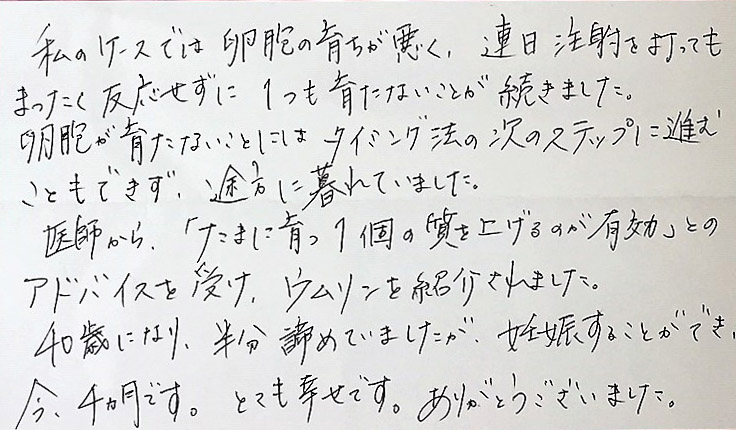 私のケースでは卵胞の育ちが悪く、連日注射を打っても
まったく反応せずに1つも育たないことが続きました。
卵胞が育たないことにはタイミング法の次のステップに進む
こともできず、途方に暮れていました。
医師から、「たまに育つ1個の質を上げるのが有効」との
アドバイスを受け、ウムリンを紹介されました。
40歳になり、半分諦めていましたが、妊娠することができ、
今、4ヵ月です。とても幸せです。ありがとうございました。